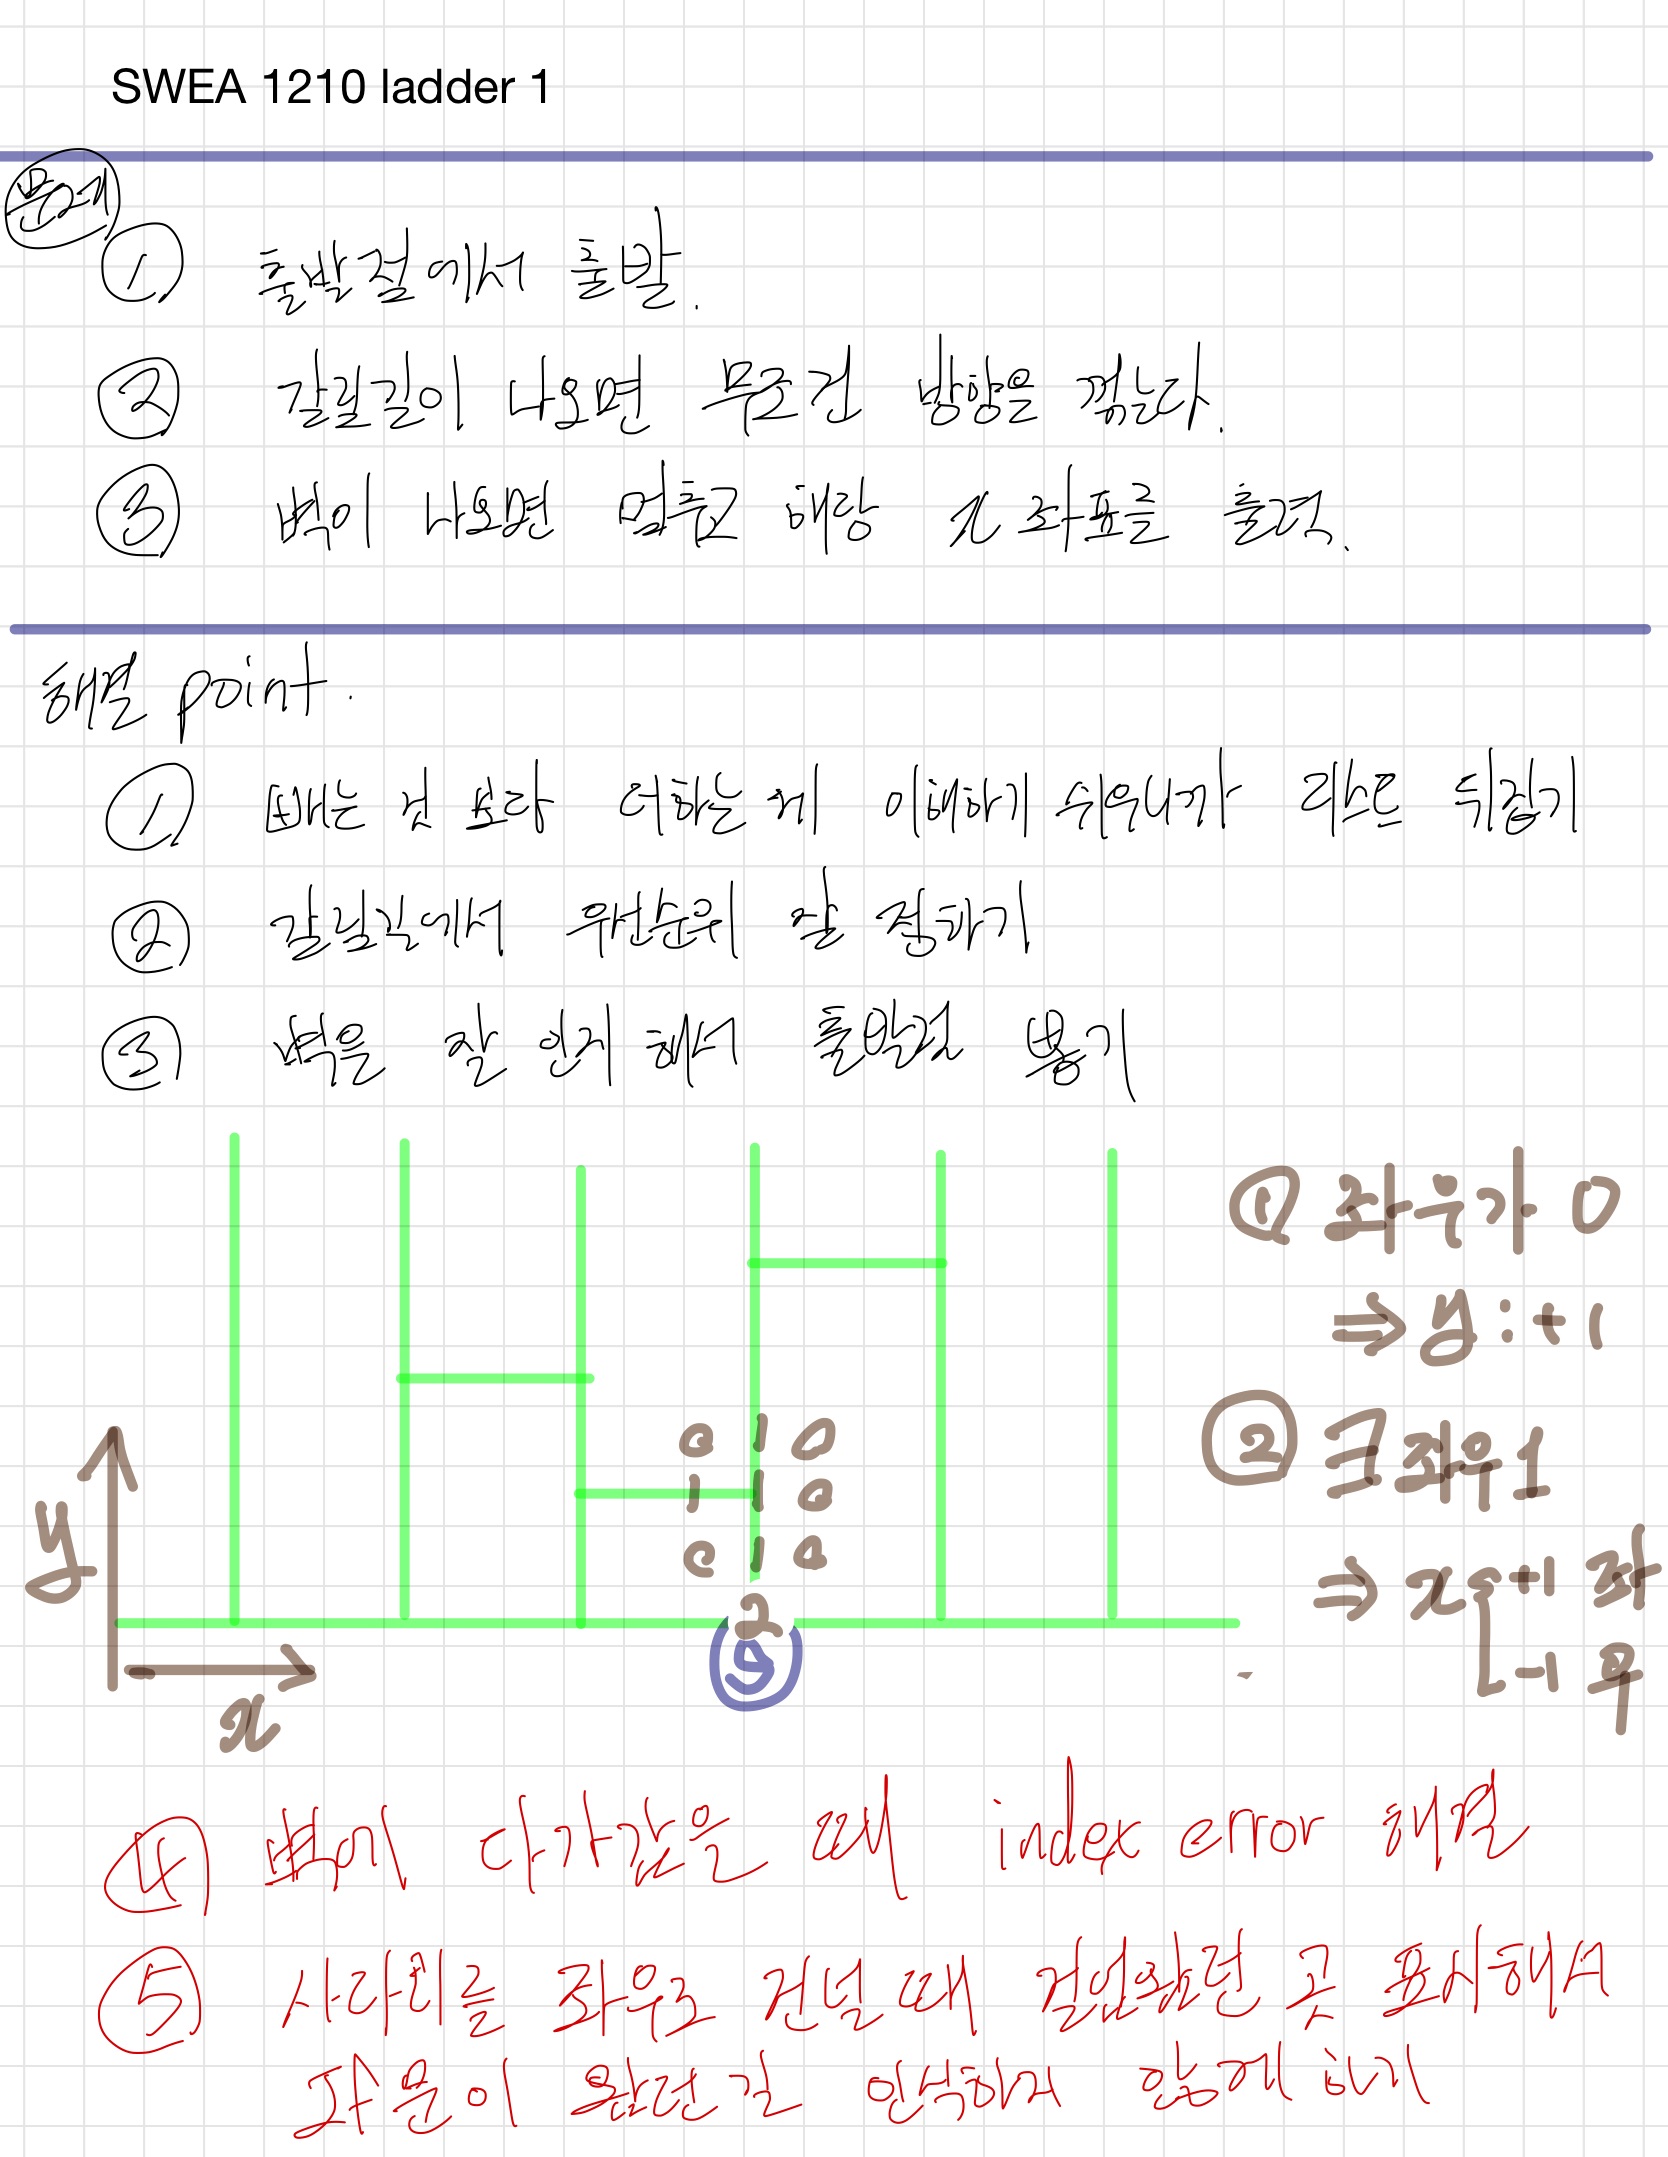 SWEA 1210 ladder 1
문제
① 출발점에서 출발.
② 갈림길이 나오면 무조건 방향을 꺾는다.
③ 벽이 나오면 멈추고 해당 x 좌표를 출력.
해결 point.
① 빼는 것 보다 더하는 게 이해하기 쉬우니까 리스트 뒤집기
② 갈림길에서 우선순위 잘 정하기
③ 벽을 잘 인지 해서 출발점 뽑기
① 좌우가 0
⇒ y : +1
② ∃ 좌우 1
⇒ x +1 좌
-1 우
0 1 0
1 1 0
0 1 0
2
S
y
x
④ 벽에 다가갔을 때 index error 해결
⑤ 사다리를 좌우로 건널 때 걸어왔던 곳 표시해서
파문이 왔던길 인식하지 않게 하기